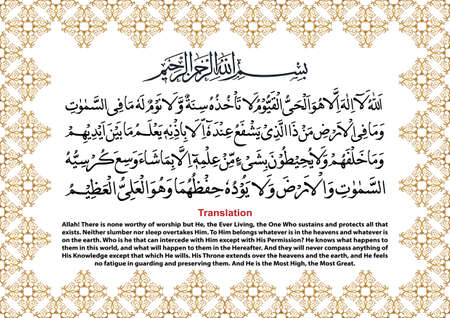 بِسْمِ اللهِ الرَّحْمٰنِ الرَّحِيْمِ
اَللهُ لَآ اِلٰهَ اِلَّا هُوَ الْحَيُّ الْقَيُّوْمُ لَا تَأْخُذُهٗ سِنَةٌ وَّلَا نَوْمٌ لَهٗ مَا فِي السَّمٰوٰتِ
وَمَا فِي الْاَرْضِ مَنْ ذَا الَّذِيْ يَشْفَعُ عِنْدَهٗٓ اِلَّا بِاِذْنِهٖ يَعْلَمُ مَا بَيْنَ اَيْدِيْهِمْ
وَمَا خَلْفَهُمْ وَلَا يُحِيْطُوْنَ بِشَيْءٍ مِّنْ عِلْمِهٖٓ اِلَّا بِمَا شَآءَ وَسِعَ كُرْسِيُّهُ
السَّمٰوٰتِ وَالْاَرْضَ وَلَا يَئُوْدُهٗ حِفْظُهُمَا وَهُوَ الْعَلِيُّ الْعَظِيْمُ
Translation
Allah! There is none worthy of worship but He, the Ever Living, the One Who sustains and protects all that
exists. Neither slumber nor sleep overtakes Him. To Him belongs whatever is in the heavens and whatever is
on the earth. Who is he that can intercede with Him except with His Permission? He knows what happens to
them in this world, and what will happen to them in the Hereafter. And they will never compass anything of
His Knowledge except that which He wills. His Throne extends over the heavens and the earth, and He feels
no fatigue in guarding and preserving them. And He is the Most High, the Most Great.